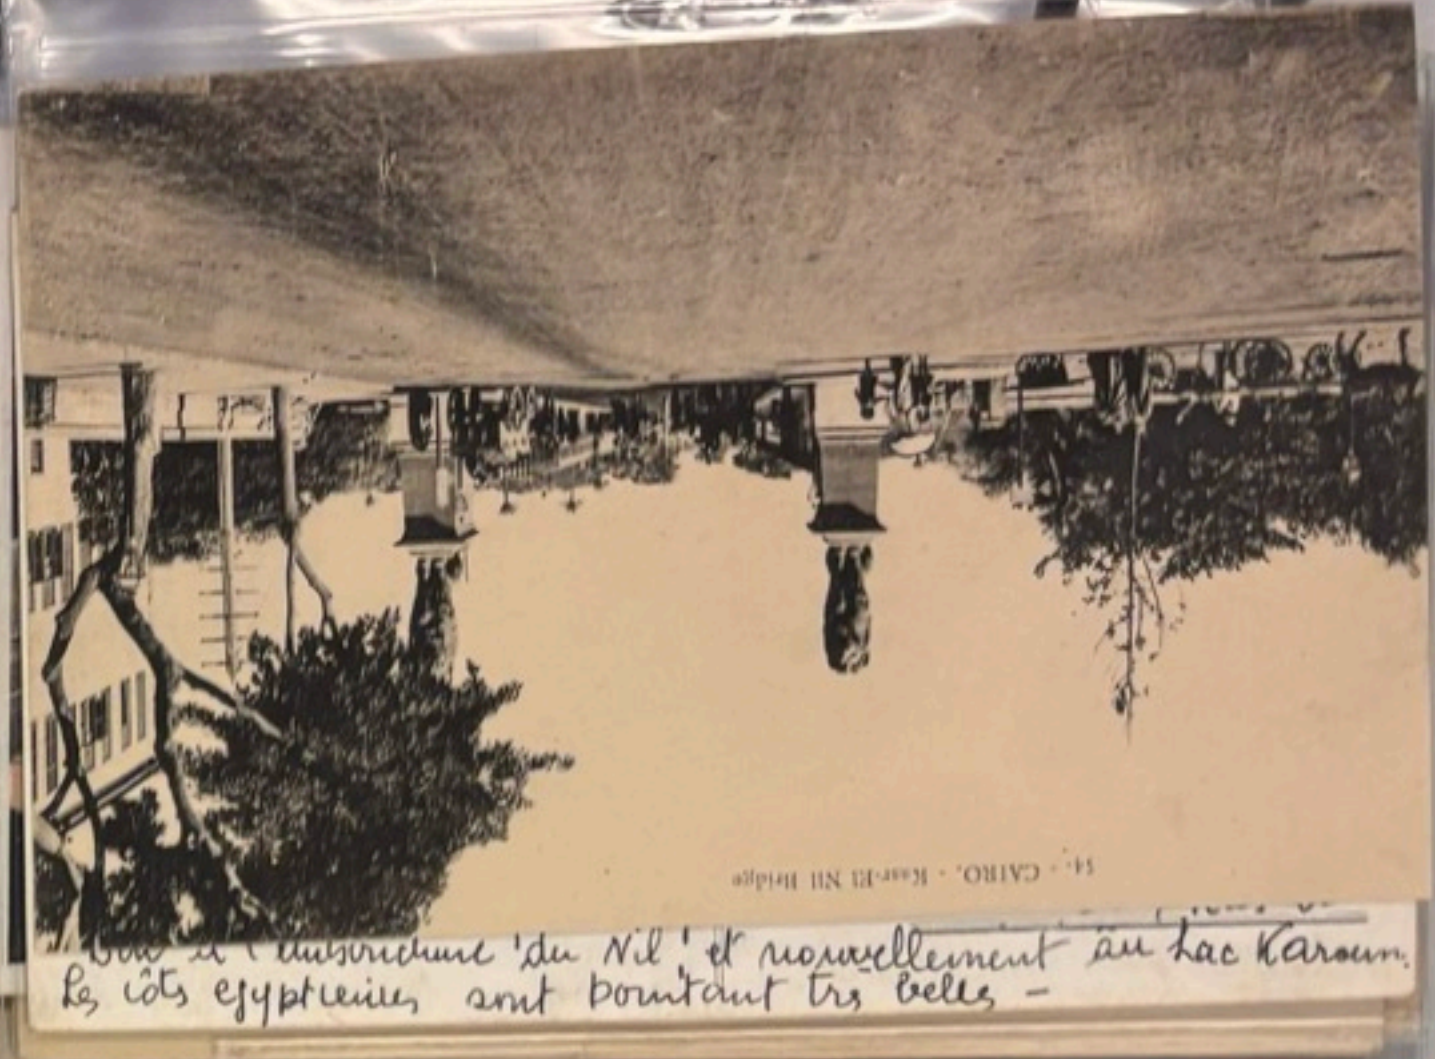 54. - CAIRO. - Kasr-El Nil Bridge
l'embouchure 'du Nil' et nouvellement au Lac Karoun.
Les côts egyptiennes sont pourtant très belles -